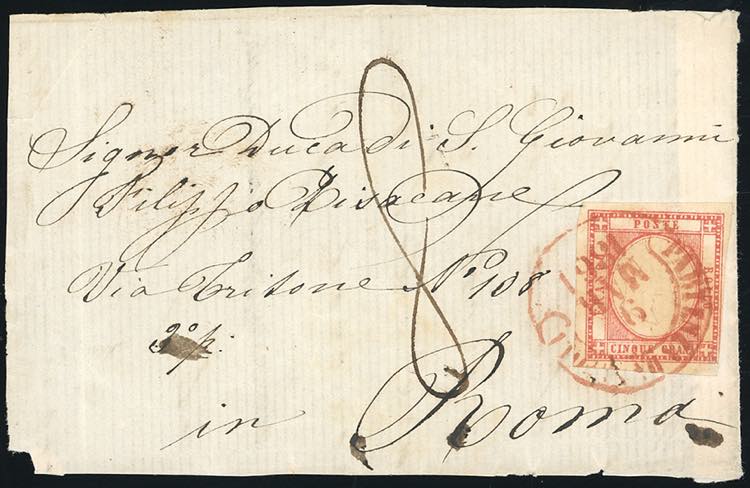 8
Signor Duca di S. Giovanni
Filippo Pisacane
Via Tritone No 108
3o p.
in Roma
POSTE
BOLLO
CINQUE GRANA
1861